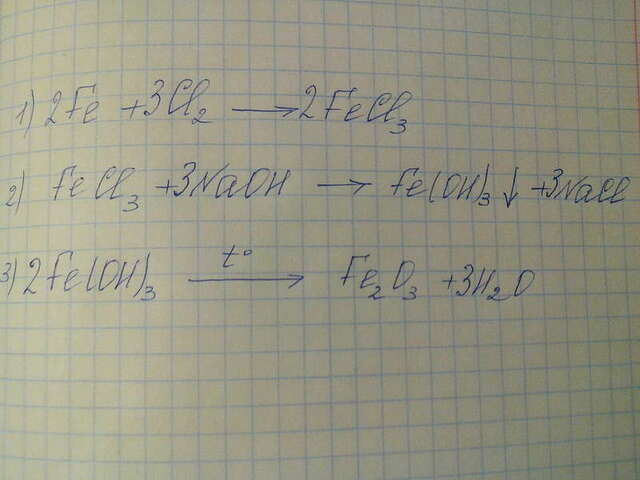 1) 2Fe + 3Cl₂ ⟶ 2FeCl₃
2) FeCl₃ + 3NaOH ⟶ Fe(OH)₃↓ + 3NaCl
3) 2Fe(OH)₃ t°⟶ Fe₂O₃ + 3H₂O